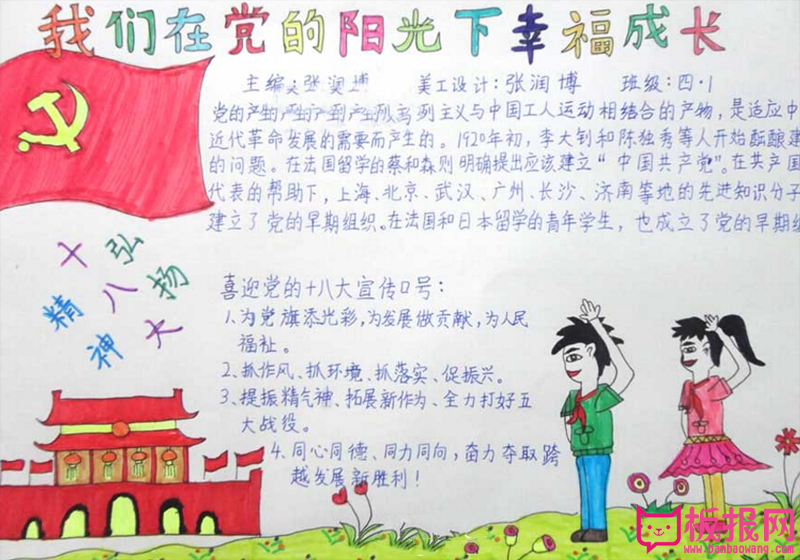 我们在党的阳光下幸福成长
主编:张润博 美工设计:张润博 班级:四·1
党的产生 列主义与中国工人运动相结合的产物,是适应中
近代革命发展的需要而产生的。1920年初,李大钊和陈独秀等人开始酝酿建
的问题。在法国留学的蔡和森则明确提出应该建立“中国共产党”。在共产国
代表的帮助下,上海、北京、武汉、广州、长沙、济南等地的先进知识分子
建立了党的早期组织。在法国和日本留学的青年学生,也成立了党的早期组
弘扬
十八大
精神
喜迎党的十八大宣传口号:
1、为党旗添光彩,为发展做贡献,为人民
福祉。
2、抓作风、抓环境、抓落实、促振兴。
3、提振精气神、拓展新作为、全力打好五
大战役。
4、同心同德、同力同向,奋力夺取跨
越发展新胜利!
板报网
www.banbaowang.com